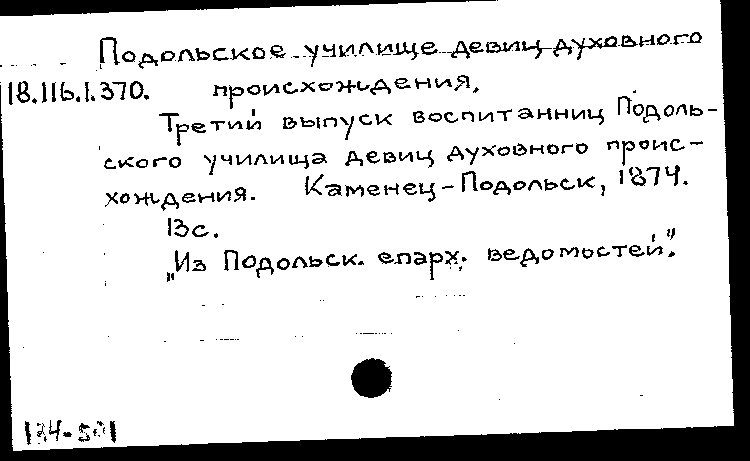 Подольское училище девиц духовного
18.116.1.370. происхождения.
Третий выпуск воспитанниц Подоль-
ского училища девиц духовного проис-
хождения. Каменец-Подольск, 1874.
13с.
„Из Подольск. епарх. ведомостей".
134-501